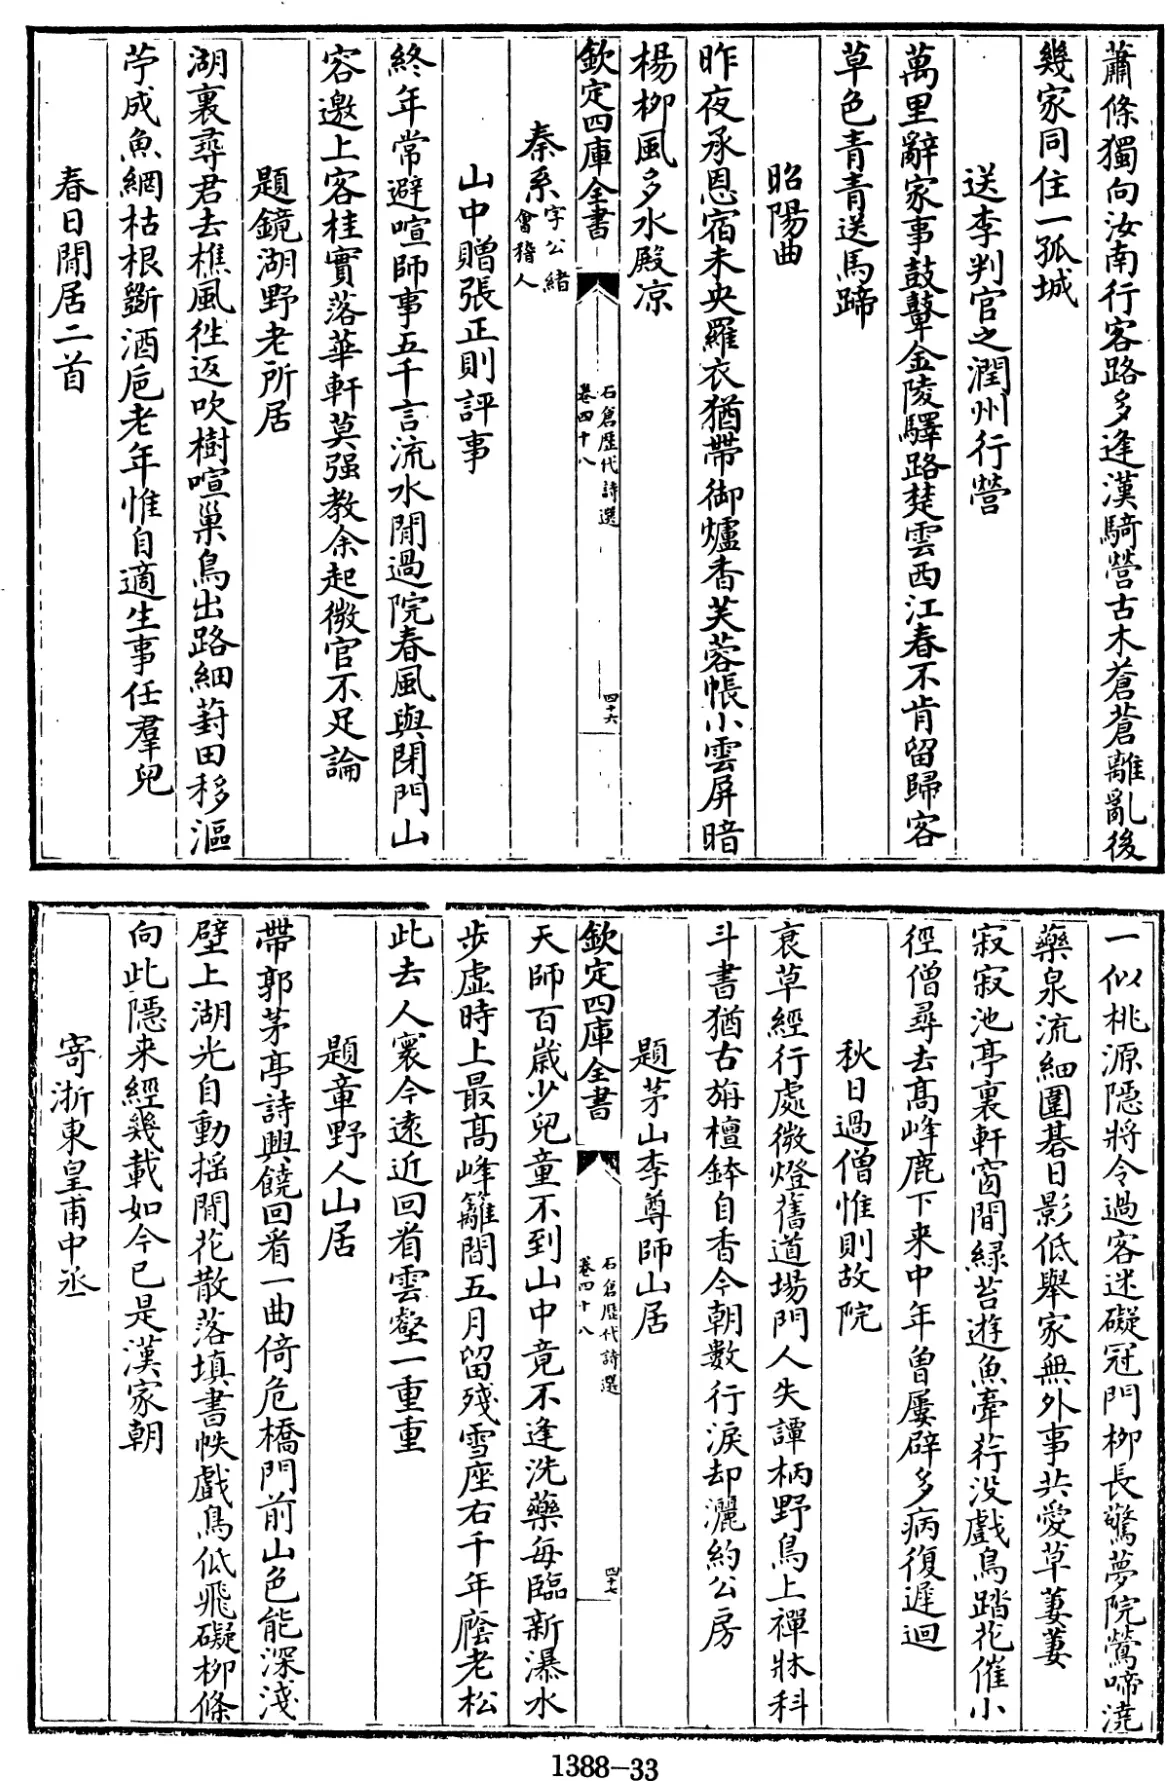 蕭條獨向汝南行客路多逢漢騎營古木蒼蒼離亂後
幾家同住一孤城
送李判官之潤州行營
萬里辭家事鼓鼙金陵驛路楚雲西江春不肯留歸客
草色青青送馬蹄
昭陽曲
昨夜承恩宿未央羅衣猶帶御爐香芙蓉帳小雲屏暗
楊柳風多水殿凉
欽定四庫全書
石倉歷代詩選
卷四十八
四十六
秦系
字公緒
會稽人
山中贈張正則評事
終年常避喧師事五千言流水閒過院春風與閉門山
容邀上客桂實落華軒莫强教余起微官不足論
題鏡湖野老所居
湖裏尋君去樵風徃返吹樹喧巢鳥出路細葑田移漚
苧成魚網枯根斵酒巵老年惟自適生事任羣兒
春日閒居二首
一似桃源隱將令過客迷礙冠門柳長驚夢院鶯啼澆
藥泉流細圍碁日影低舉家無外事共愛草萋萋
寂寂池亭裏軒窗閒綠苔遊魚牽荇没戲鳥踏花催小
徑僧尋去高峰鹿下來中年曾屢辟多病復遲迴
秋日過僧惟則故院
衰草經行處微燈舊道場門人失譚柄野鳥上禪牀科
斗書猶古旃檀鉢自香今朝數行淚却灑約公房
題茅山李尊師山居
欽定四庫全書
石倉歷代詩選
卷四十八
四十七
天師百歲少兒童不到山中竟不逢洗藥每臨新瀑水
步虛時上最高峰籬間五月留殘雪座右千年䕃老松
此去人寰今遠近回看雲壑一重重
題章野人山居
帶郭茅亭詩興饒回看一曲倚危橋門前山色能深淺
壁上湖光自動揺閒花散落填書帙戲鳥低飛礙柳條
向此隱來經幾載如今已是漢家朝
寄浙東皇甫中丞
1388—33